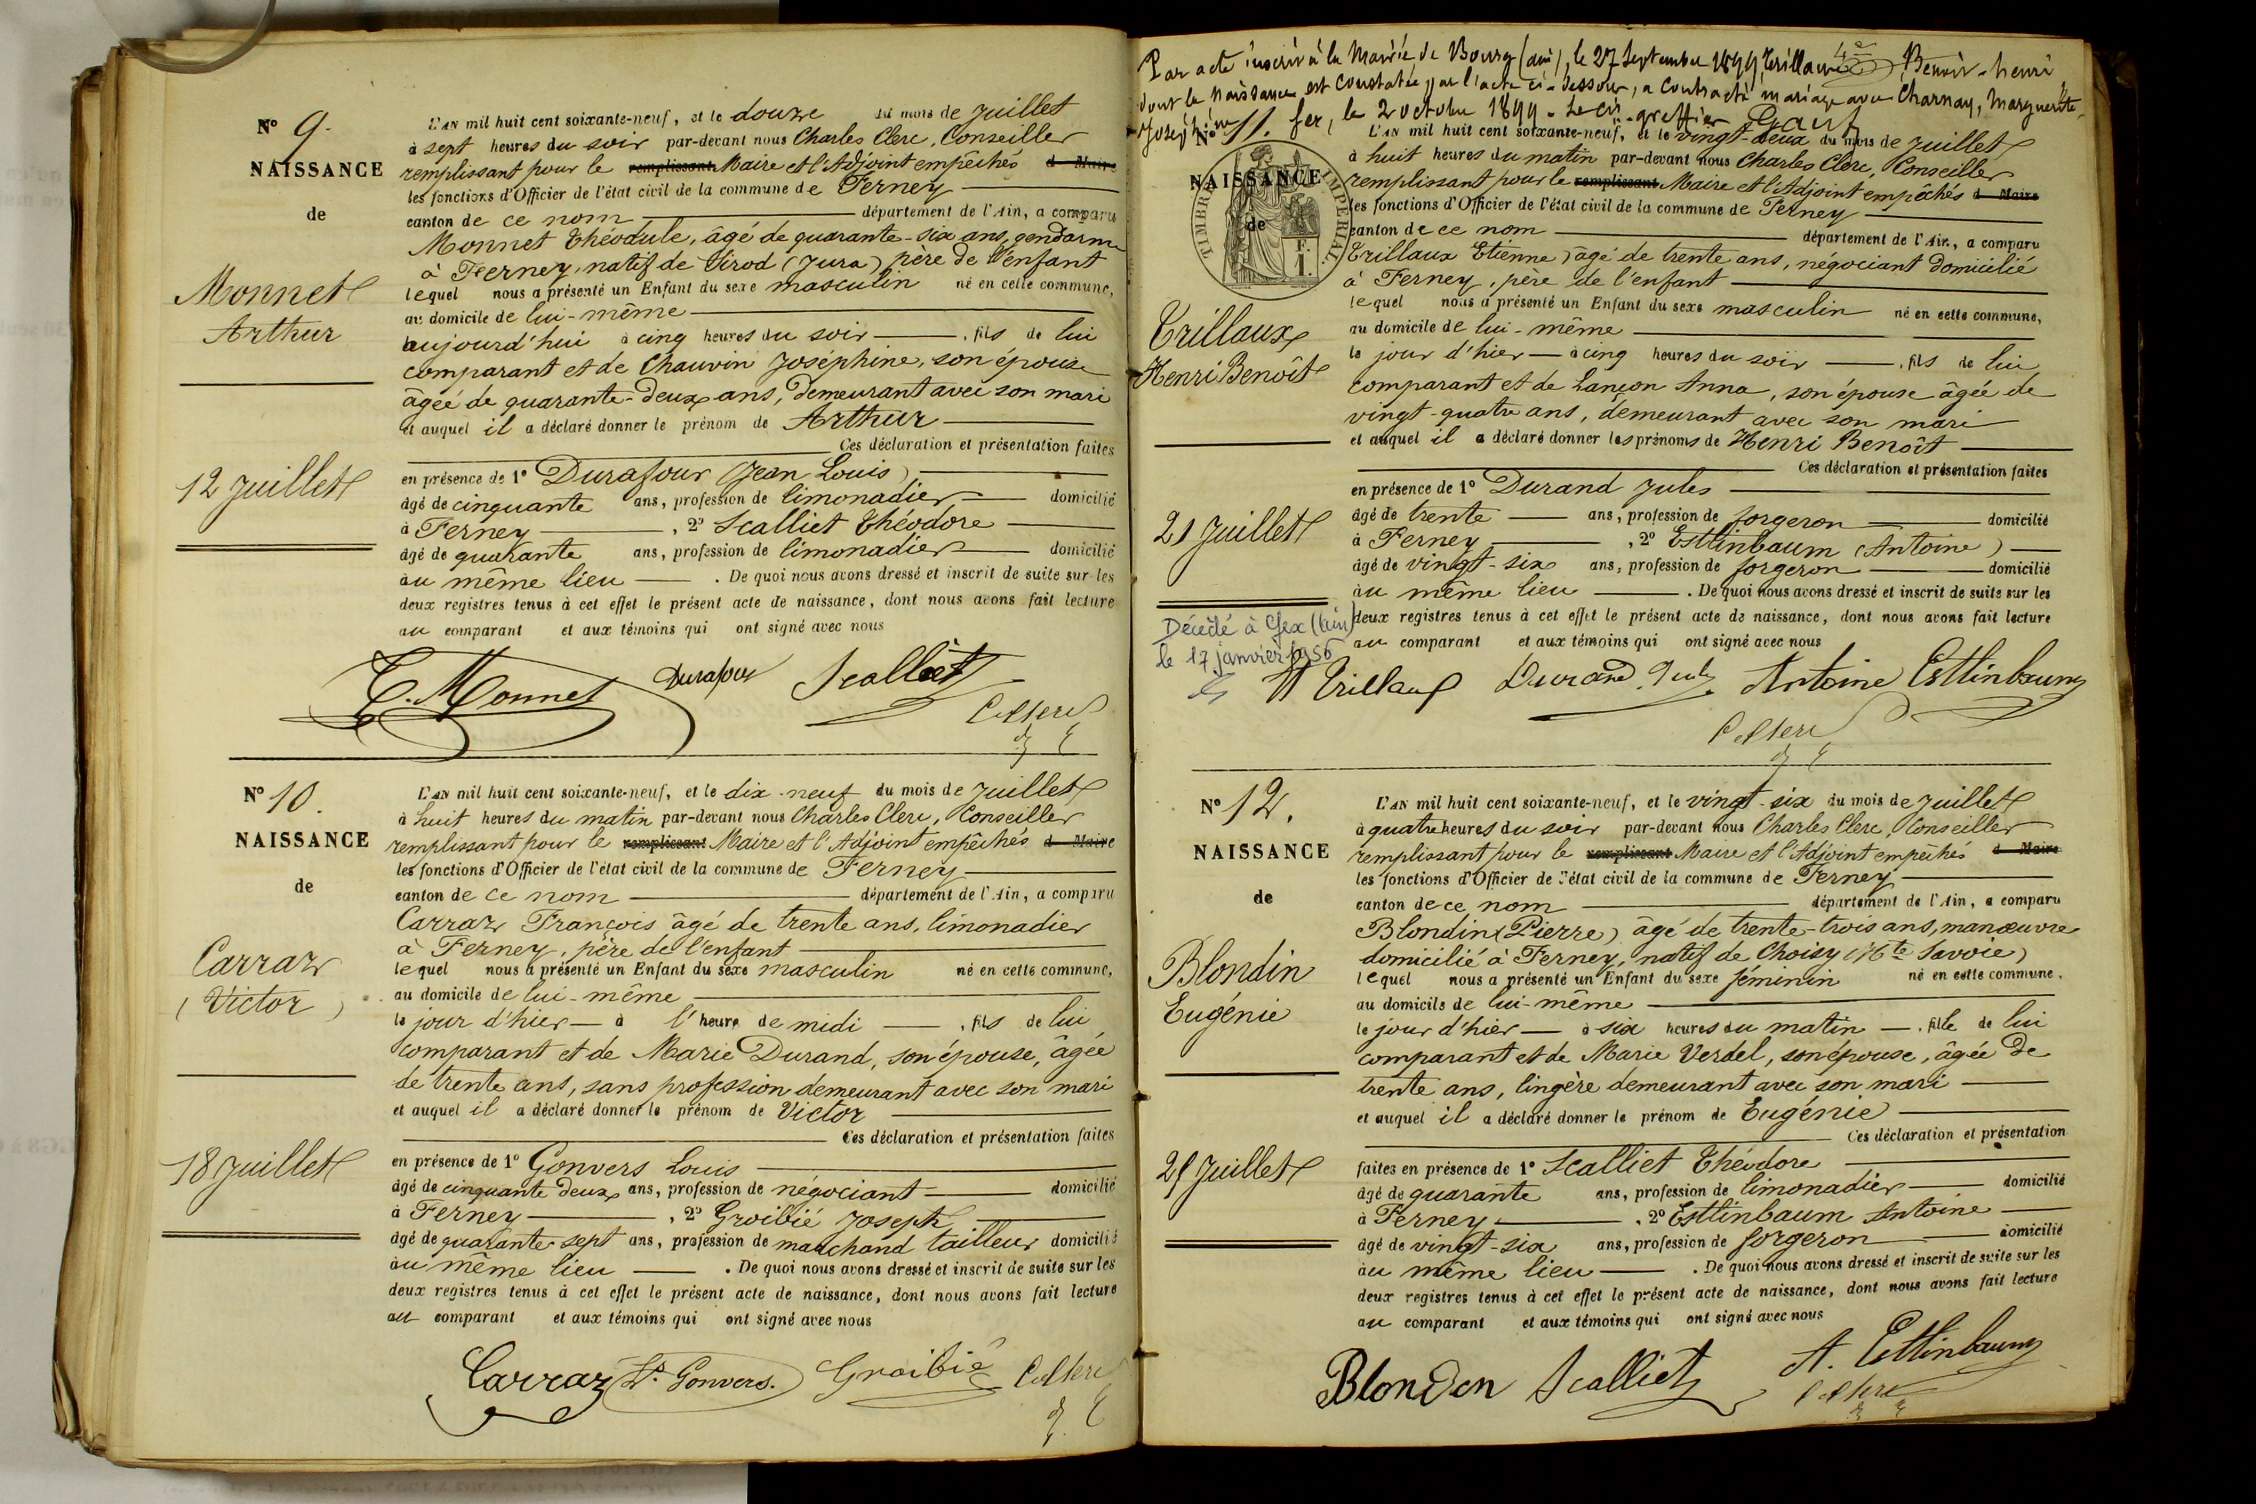 N° 9.
NAISSANCE
de
Monnet
Arthur
12 Juillet
L'AN mil huit cent soixante-neuf, et le douze du mois de Juillet
à sept heures du soir par-devant nous Charles Clerc, Conseiller
remplissant pour le remplissant Maire et l'Adjoint empêchés d Maire
les fonctions d'Officier de l'état civil de la commune de Ferney
canton de ce nom département de l'Ain, a comparu
Monnet Théodule, âgé de quarante-six ans, gendarme
à Ferney, natif de Sirod (Jura) père de l'enfant
lequel nous a présenté un Enfant du sexe masculin né en cette commune,
au domicile de lui-même
aujourd'hui à cinq heures du soir , fils de lui
comparant et de Chauvin Joséphine, son épouse
âgée de quarante-deux ans, demeurant avec son mari
et auquel il a déclaré donner le prénom de Arthur
Ces déclaration et présentation faites
en présence de 1° Durafour (Jean Louis)
âgé de cinquante ans, profession de limonadier domicilié
à Ferney , 2° Scalliet Théodore
âgé de quarante ans, profession de limonadier domicilié
au même lieu . De quoi nous avons dressé et inscrit de suite sur les
deux registres tenus à cet effet le présent acte de naissance, dont nous avons fait lecture
au comparant et aux témoins qui ont signé avec nous
T. Monnet Durafour Scalliet
N° 10.
NAISSANCE
de
Carraz
(Victor)
18 Juillet
L'AN mil huit cent soixante-neuf, et le dix-neuf du mois de Juillet
à huit heures du matin par-devant nous Charles Clerc, Conseiller
remplissant pour le remplissant Maire et l'Adjoint empêchés d Maire
les fonctions d'Officier de l'état civil de la commune de Ferney
canton de ce nom département de l'Ain, a comparu
Carraz François âgé de trente ans, limonadier
à Ferney, père de l'enfant
lequel nous a présenté un Enfant du sexe masculin né en cette commune,
au domicile de lui-même
le jour d'hier à l'heure de midi , fils de lui
comparant et de Marie Durand, son épouse, âgée
de trente ans, sans profession demeurant avec son mari
et auquel il a déclaré donner le prénom de Victor
Ces déclaration et présentation faites
en présence de 1° Gonvers Louis
âgé de cinquante deux ans, profession de négociant domicilié
à Ferney , 2° Groibié Joseph
âgé de quarante-sept ans, profession de marchand tailleur domicilié
au même lieu . De quoi nous avons dressé et inscrit de suite sur les
deux registres tenus à cet effet le présent acte de naissance, dont nous avons fait lecture
au comparant et aux témoins qui ont signé avec nous
Carraz Ls. Gonvers. Groibié
Par acte inscrit à la Mairie de Bourg (Ain), le 27 Septembre 1899, Trillaux Benoit-henri
dont la naissance est constatée par l'acte ci-dessous, a contracté mariage avec Charnay, Marguerite,
Joséphine. Gex, le 2 octobre 1899. Le Cis-greffier
N° 11.
NAISSANCE
de
TIMBRE IMPERIAL
1 F.
Trillaux
Henri Benoît
21 Juillet
Décédé à Gex (Ain)
le 17 janvier 1956
L'AN mil huit cent soixante-neuf, et le vingt-deux du mois de Juillet
à huit heures du matin par-devant nous Charles Clerc, Conseiller
remplissant pour le remplissant Maire et l'Adjoint empêchés d Maire
les fonctions d'Officier de l'état civil de la commune de Ferney
canton de ce nom département de l'Ain, a comparu
Trillaux Etienne, âgé de trente ans, négociant domicilié
à Ferney, père de l'enfant
lequel nous a présenté un Enfant du sexe masculin né en cette commune,
au domicile de lui-même
le jour d'hier à cinq heures du soir , fils de lui
comparant et de Lançon Anna, son épouse âgée de
vingt-quatre ans, demeurant avec son mari
et auquel il a déclaré donner les prénoms de Henri Benoît
Ces déclaration et présentation faites
en présence de 1° Durand Jules
âgé de trente ans, profession de forgeron domicilié
à Ferney , 2° Estlinbaum (Antoine)
âgé de vingt-six ans, profession de forgeron domicilié
au même lieu . De quoi nous avons dressé et inscrit de suite sur les
deux registres tenus à cet effet le présent acte de naissance, dont nous avons fait lecture
au comparant et aux témoins qui ont signé avec nous
Trillaux Durand Jules Antoine Estlinbaum
N° 12.
NAISSANCE
de
Blondin
Eugénie
25 Juillet
L'AN mil huit cent soixante-neuf, et le vingt-six du mois de Juillet
à quatre heures du soir par-devant nous Charles Clerc, Conseiller
remplissant pour le remplissant Maire et l'Adjoint empêchés d Maire
les fonctions d'Officier de l'état civil de la commune de Ferney
canton de ce nom département de l'Ain, a comparu
Blondin (Pierre) âgé de trente-trois ans, manœuvre
domicilié à Ferney, natif de Choisy (Hte Savoie)
lequel nous a présenté un Enfant du sexe féminin né en cette commune,
au domicile de lui-même
le jour d'hier à six heures du matin , fille de lui
comparant et de Marie Verdel, son épouse, âgée de
trente ans, lingère demeurant avec son mari
et auquel il a déclaré donner le prénom de Eugénie
Ces déclaration et présentation
faites en présence de 1° Scalliet Théodore
âgé de quarante ans, profession de limonadier domicilié
à Ferney , 2° Estlinbaum Antoine
âgé de vingt-six ans, profession de forgeron domicilié
au même lieu . De quoi nous avons dressé et inscrit de suite sur les
deux registres tenus à cet effet le présent acte de naissance, dont nous avons fait lecture
au comparant et aux témoins qui ont signé avec nous
Blonden Scalliet A. Estlinbaum